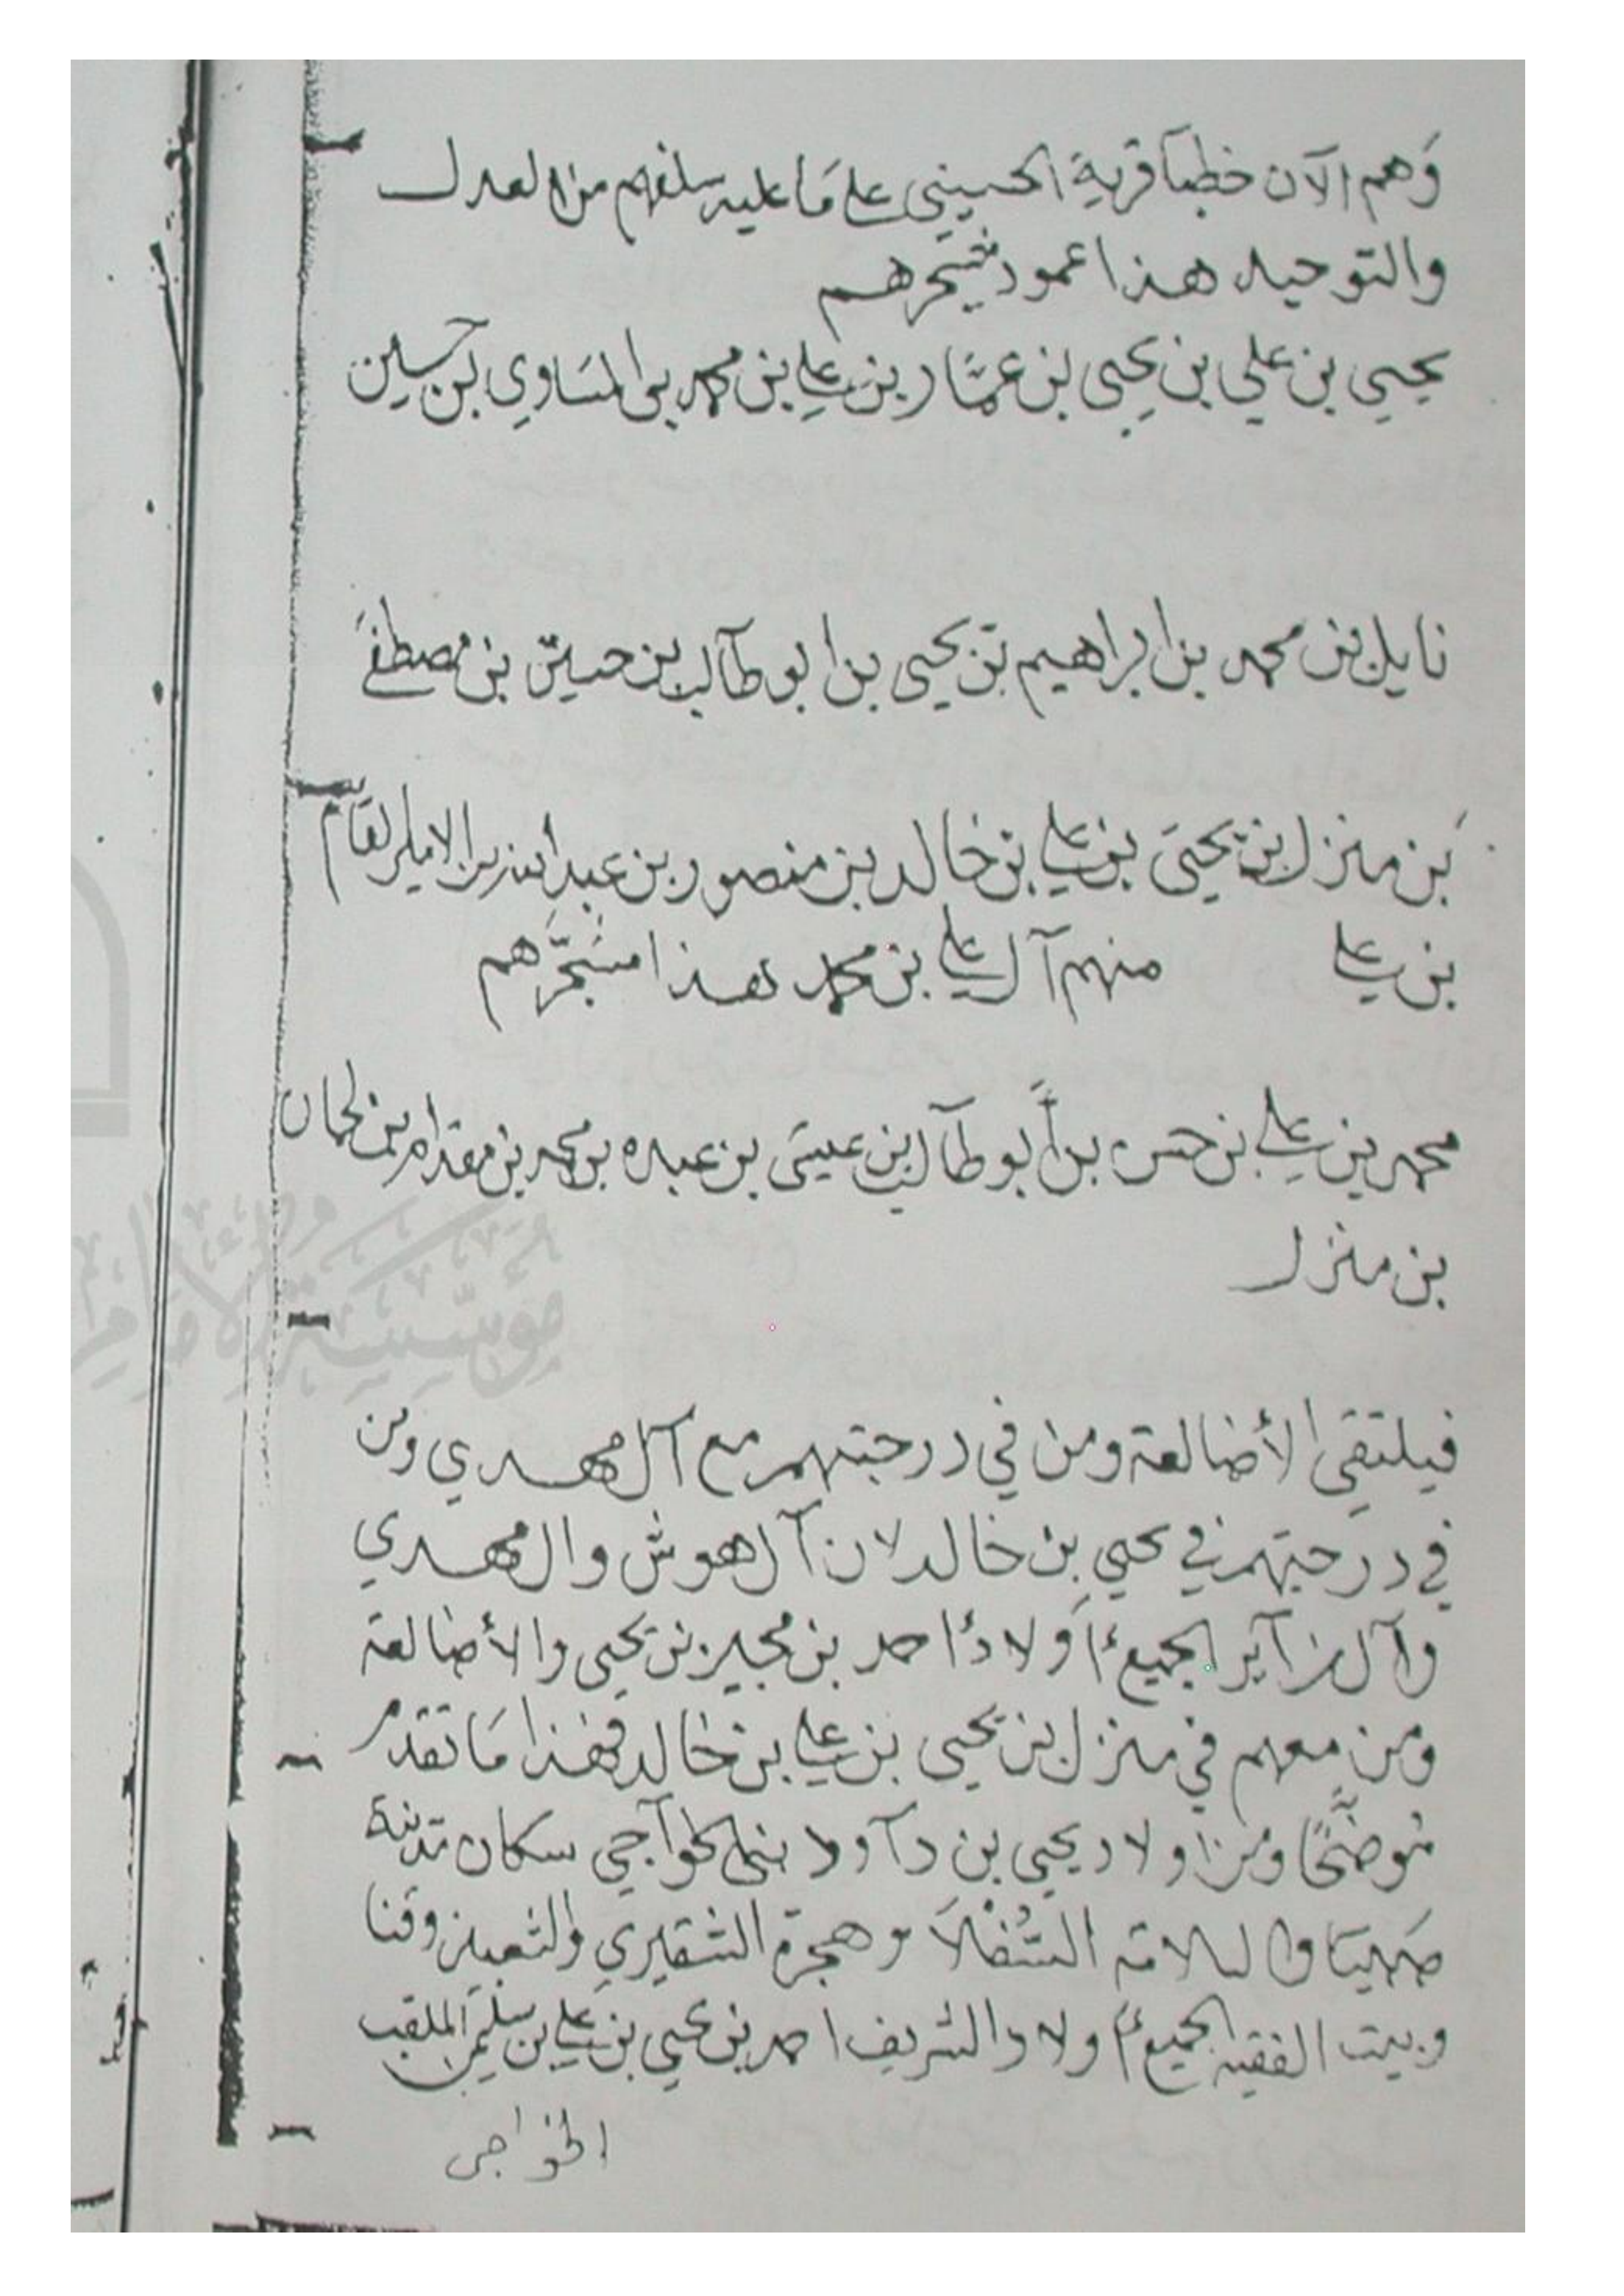 وَهم الآن خطبا قرية الحسيني على مَا عليه سلفهم من العدل
والتوحيد هذا عمود مشجرهم
يحيى بن علي بن يحيى بن عمَّار بن علي بن محمد بن المسَاوى بن حسين
نايل بن محمد بن ابراهيم بن يحيى بن ابو طالب بن حسين بن مصطفىَ
بَن منزل بن يحيىَ بن علي بن خالد بن منصور بن عبدالله بن الامير القاسم
بن علي منهم آل علي بن محمد هذا مشجَّرهم
محمد بن علي بن حسن بن أبو طالب بن عيسَى بن عبده بن محمد بن مقدام بن لحمان
بن منزل
فيلتقى الأضالعة ومن في درجتهم مع آل مهدي ومن
في درجتهم في يحيى بن خالد لان آل هوش وال مهدي
وآل زآير الجميع أَولادُ احمد بن مجير بن يحيى والأضالعة
ومن معهم في منزل بن يحيى بن علي بن خالد فهذا مَا تقدم
مُوضَّحًا ومن اولاد يحيى بن دآود بني الخوآجي سكان مدينة
صَبيَا والسلامة السُّفْلاَ وهجرة الشقيري والشعبين وقنا
وبيت الفقيه الجميع أولاد الشريف احمد بن يحيى بن علي بن سليمن الملقب
الخواجى